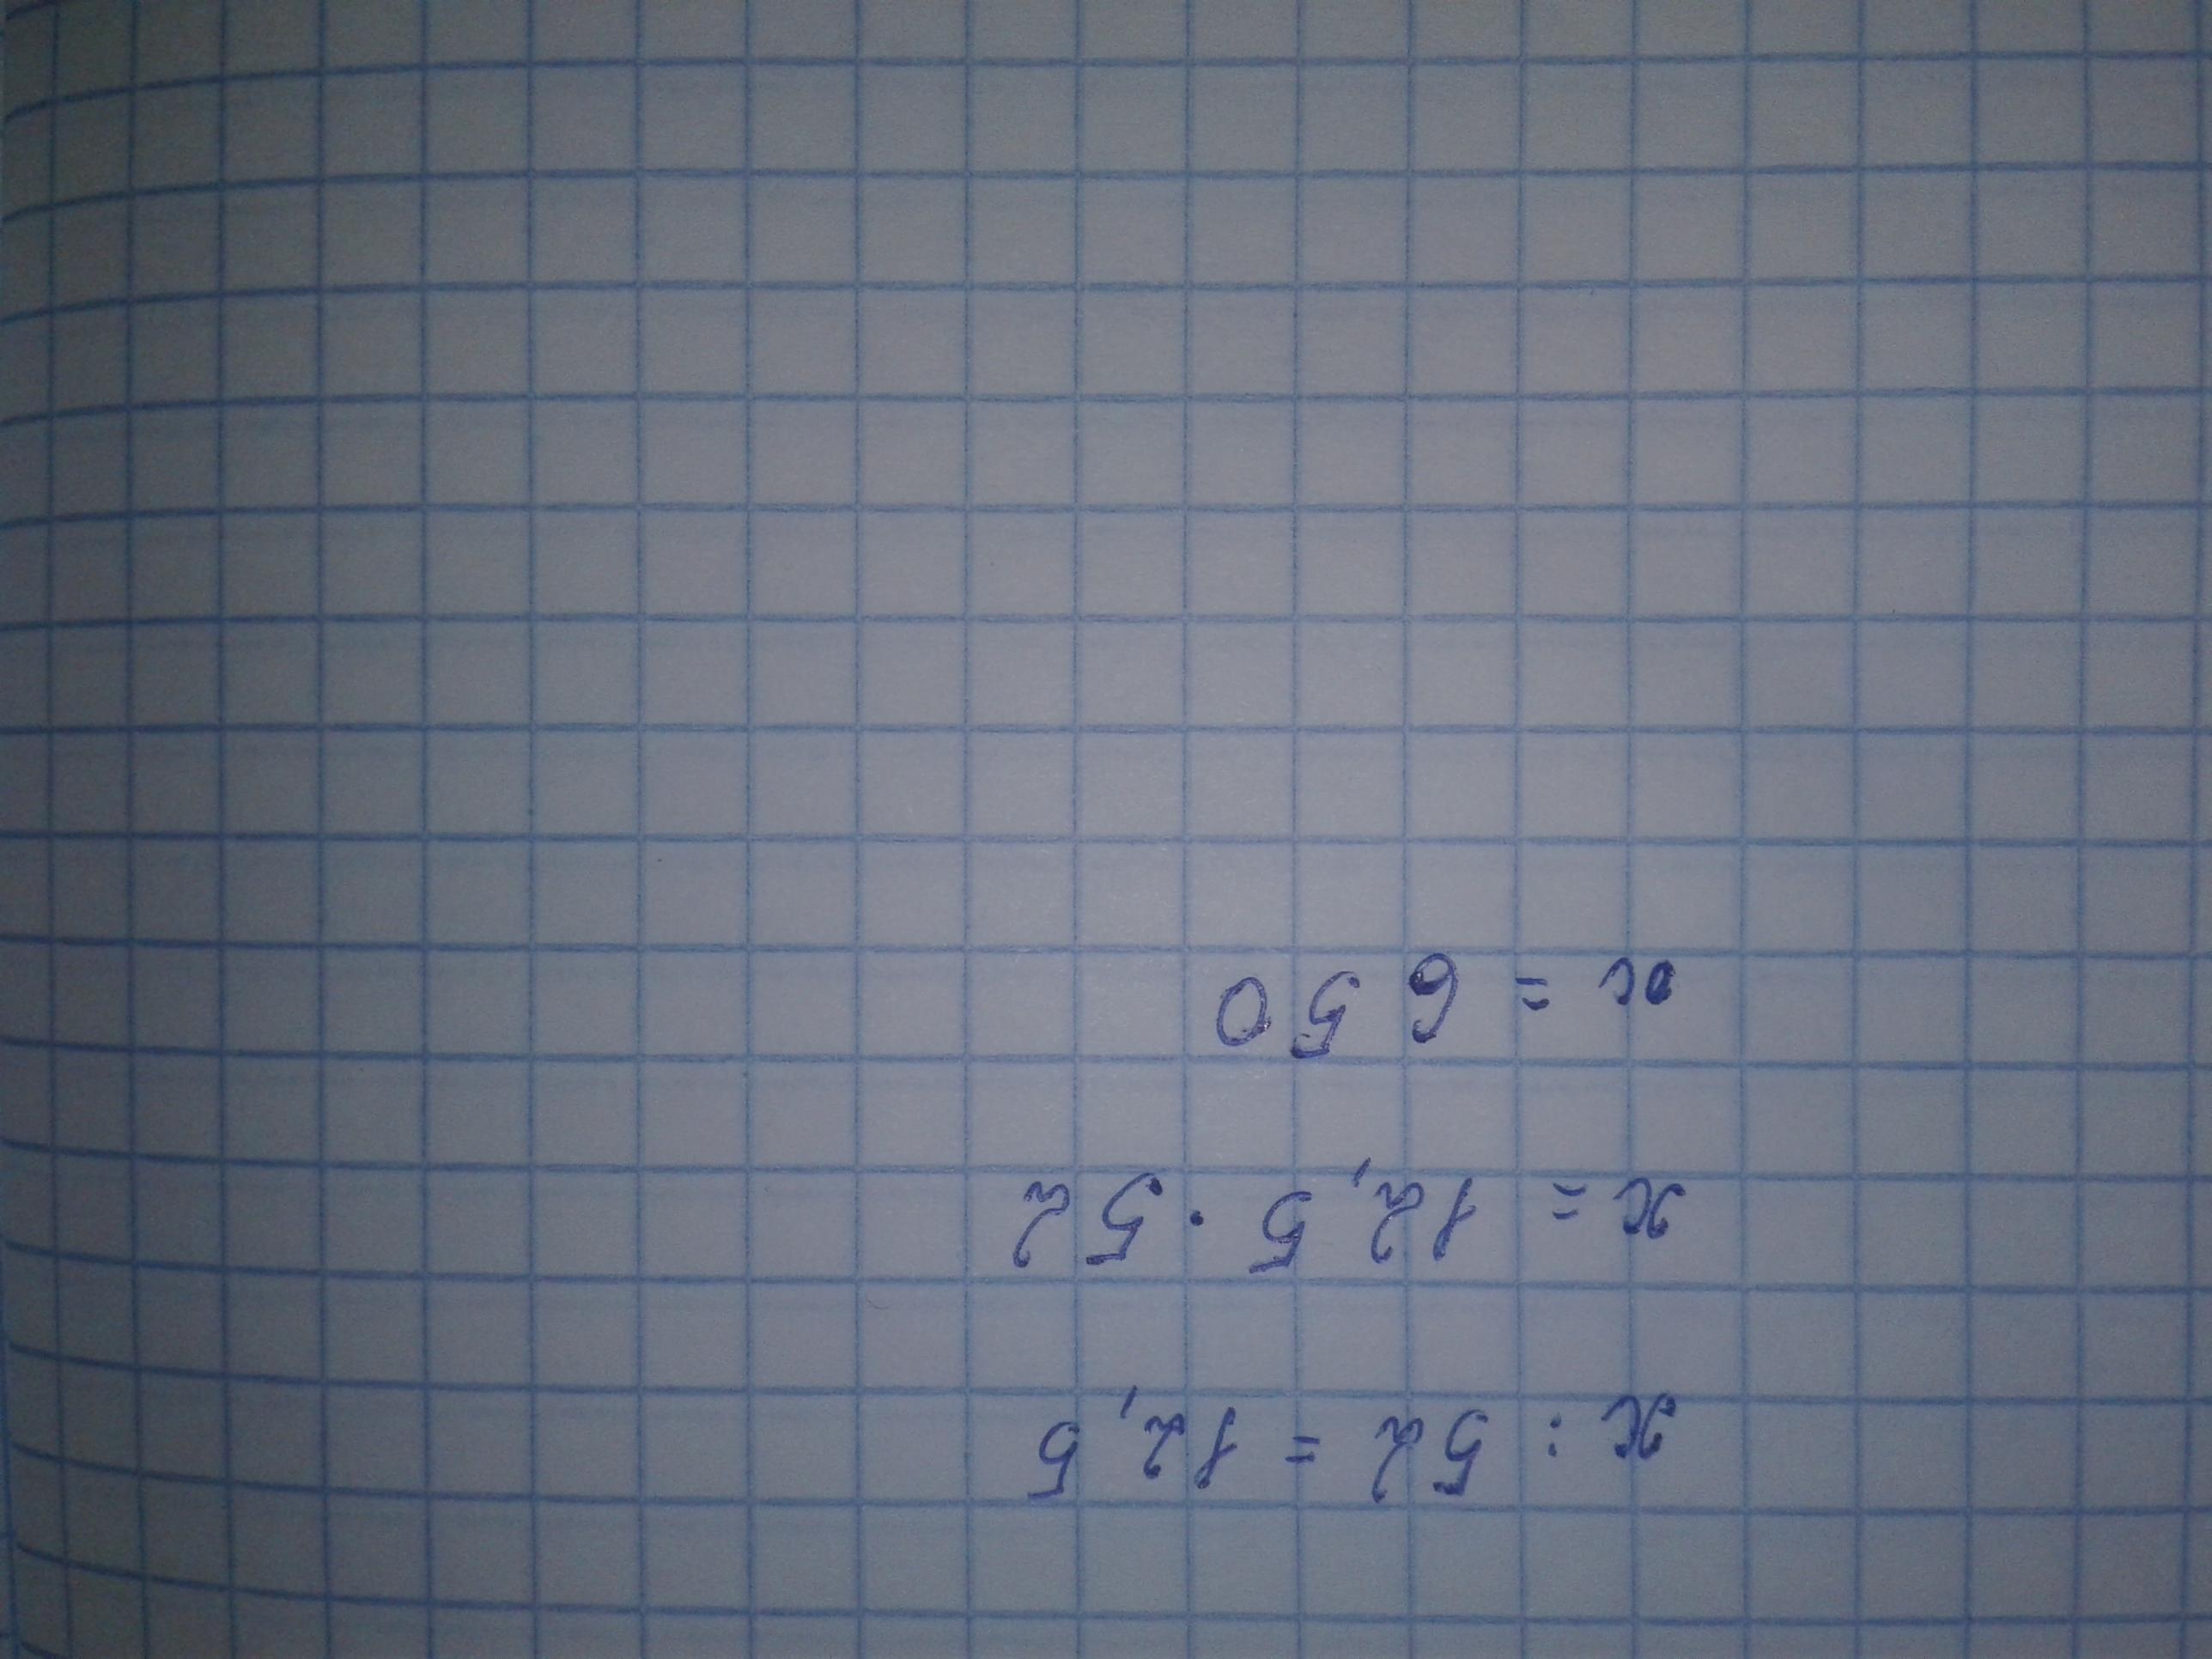 x : 52 = 12,5
x = 12,5 · 52
x = 650